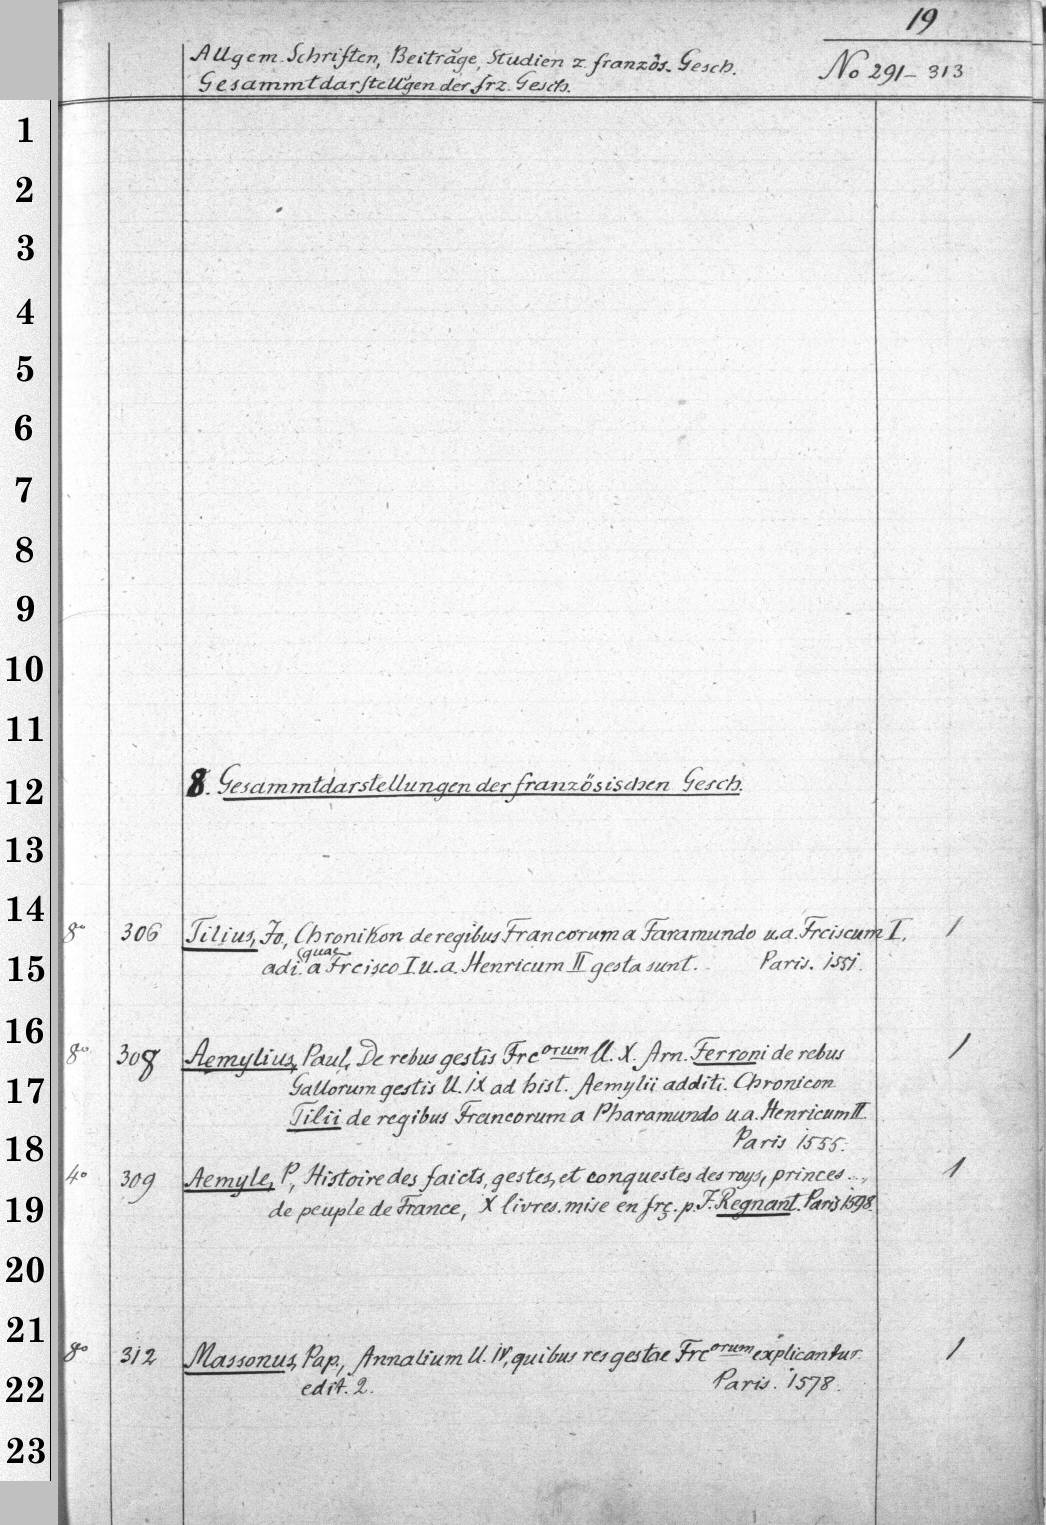 19
Allgem. Schriften, Beiträge, Studien z französ. Gesch.
No 291-313
Gesammtdarstellgen der frz. Gesch.
1
2
3
4
5
6
7
8
9
10
11
12
8. Gesammtdarstellungen der französischen Gesch.
13
14
8° 306 Tilius, Jo, Chronikon de regibus Francorum a Faramundo u.a. Frciscum I. 1
quae
15
adi. a Frcisco I u.a. Henricum II gesta sunt. Paris. 1551.
16
8° 308 Aemylius, Paul, De rebus gestis Frcorum ll. X. Arn. Ferroni de rebus 1
17
Gallorum gestis ll. IX ad hist. Aemylii additi. Chronicon
Tilii de regibus Francorum a Pharamundo u.a. Henricum II.
18
Paris 1555.
4° 309 Aemyle, P, Histoire des faicts, gestes, et conquestes des roys, princes..., 1
19
de peuple de France, X livres. mise en frç. p. F. Regnant. Paris 1598.
20
21
8° 312 Massonus, Pap., Annalium ll. IV, quibus res gestae Frcorum explicantur. 1
22
edit. 2. Paris. 1578.
23